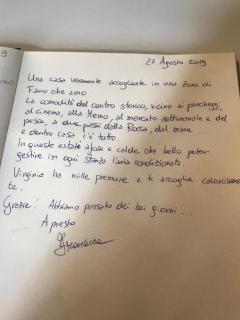 27 Agosto 2019
Una casa veramente accogliente in una zona di
Fano che amo
La comodità del centro storico, vicino ai parcheggi,
al cinema, alla Memo, al mercato settimanale e del
pesce, a due passi dalla Rocca, dal mare ...
e dentro casa c'è tutto.
In queste estati afose e calde che bello poter
gestire in ogni stanza l'aria condizionata.
Virginia ha mille premure e ti accoglie calorosamen
te.
Grazie! Abbiamo passato dei bei giorni ...
A presto
Francesca